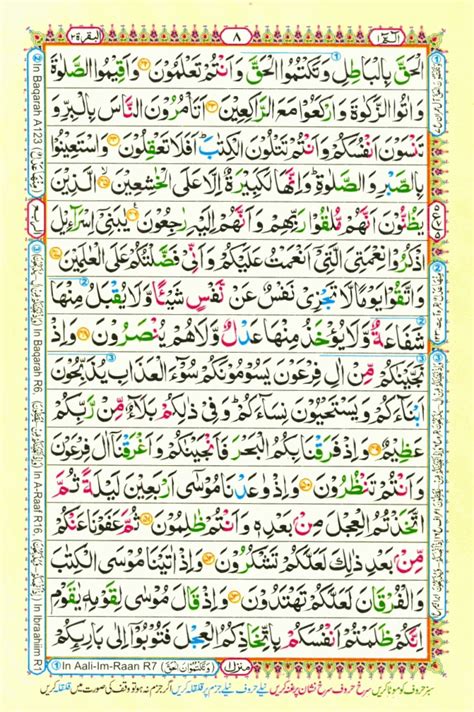 الٓمّٓ ١
٨
البقرة ٢
الْحَقَّ بِالْبَاطِلِ وَتَكْتُمُوا الْحَقَّ وَاَنْتُمْ تَعْلَمُوْنَ ۝۴۲ وَاَقِيْمُوا الصَّلٰوةَ
وَاٰتُوا الزَّكٰوةَ وَارْكَعُوْا مَعَ الرّٰكِعِيْنَ ۝۴۳ اَتَاْمُرُوْنَ النَّاسَ بِالْبِرِّ وَ
تَنْسَوْنَ اَنْفُسَكُمْ وَاَنْتُمْ تَتْلُوْنَ الْكِتٰبَ ؕ اَفَلَا تَعْقِلُوْنَ ۝۴۴ وَاسْتَعِيْنُوْا
بِالصَّبْرِ وَالصَّلٰوةِ ؕ وَاِنَّهَا لَكَبِيْرَةٌ اِلَّا عَلَى الْخٰشِعِيْنَ ۝۴۵ الَّذِيْنَ
يَظُنُّوْنَ اَنَّهُمْ مُّلٰقُوْا رَبِّهِمْ وَاَنَّهُمْ اِلَيْهِ رٰجِعُوْنَ ۝۴۶ يٰبَنِيْٓ اِسْرَآءِيْلَ
اذْكُرُوْا نِعْمَتِيَ الَّتِيْٓ اَنْعَمْتُ عَلَيْكُمْ وَاَنِّيْ فَضَّلْتُكُمْ عَلَى الْعٰلَمِيْنَ ۝۴۷
وَاتَّقُوْا يَوْمًا لَّا تَجْزِيْ نَفْسٌ عَنْ نَّفْسٍ شَيْـًٔا وَّلَا يُقْبَلُ مِنْهَا
شَفَاعَةٌ وَّلَا يُؤْخَذُ مِنْهَا عَدْلٌ وَّلَا هُمْ يُنْصَرُوْنَ ۝۴۸ وَاِذْ
نَجَّيْنٰكُمْ مِّنْ اٰلِ فِرْعَوْنَ يَسُوْمُوْنَكُمْ سُوْٓءَ الْعَذَابِ يُذَبِّحُوْنَ
اَبْنَآءَكُمْ وَيَسْتَحْيُوْنَ نِسَآءَكُمْ ؕ وَفِيْ ذٰلِكُمْ بَلَآءٌ مِّنْ رَّبِّكُمْ
عَظِيْمٌ ۝۴۹ وَاِذْ فَرَقْنَا بِكُمُ الْبَحْرَ فَاَنْجَيْنٰكُمْ وَاَغْرَقْنَآ اٰلَ فِرْعَوْنَ
وَاَنْتُمْ تَنْظُرُوْنَ ۝۵۰ وَاِذْ وٰعَدْنَا مُوْسٰٓى اَرْبَعِيْنَ لَيْلَةً ثُمَّ
اتَّخَذْتُمُ الْعِجْلَ مِنْۢ بَعْدِهٖ وَاَنْتُمْ ظٰلِمُوْنَ ۝۵۱ ثُمَّ عَفَوْنَا عَنْكُمْ
مِّنْۢ بَعْدِ ذٰلِكَ لَعَلَّكُمْ تَشْكُرُوْنَ ۝۵۲ وَاِذْ اٰتَيْنَا مُوْسَى الْكِتٰبَ
وَالْفُرْقَانَ لَعَلَّكُمْ تَهْتَدُوْنَ ۝۵۳ وَاِذْ قَالَ مُوْسٰى لِقَوْمِهٖ يٰقَوْمِ
اِنَّكُمْ ظَلَمْتُمْ اَنْفُسَكُمْ بِاتِّخَاذِكُمُ الْعِجْلَ فَتُوْبُوْٓا اِلٰى
منزل ١
① In Aali-Im-Raan R7 (وَتَكْتُمُوْنَ الْحَقَّ)
② In Baqarah A123 (مِنْهَا عَدْلٌ)
③ In Baqarah R6
In A-Raaf R16
In Ibraahiim R1
سبز حروف کو موٹا کریں سرخ حروف سرخ نشان پر غنہ کریں نیلے حروف نیلے جزم پر قلقلہ کریں اگر جزم نہ ہو تو وقف کی صورت میں قلقلہ کریں